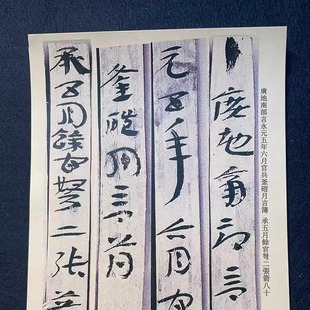 廣地南部言永元五年六月官兵釜磑月言簿 承五月餘官弩二張箭八十
廣地南部言
元五年六月官
釜磑月言簿
承五月餘官弩二張箭